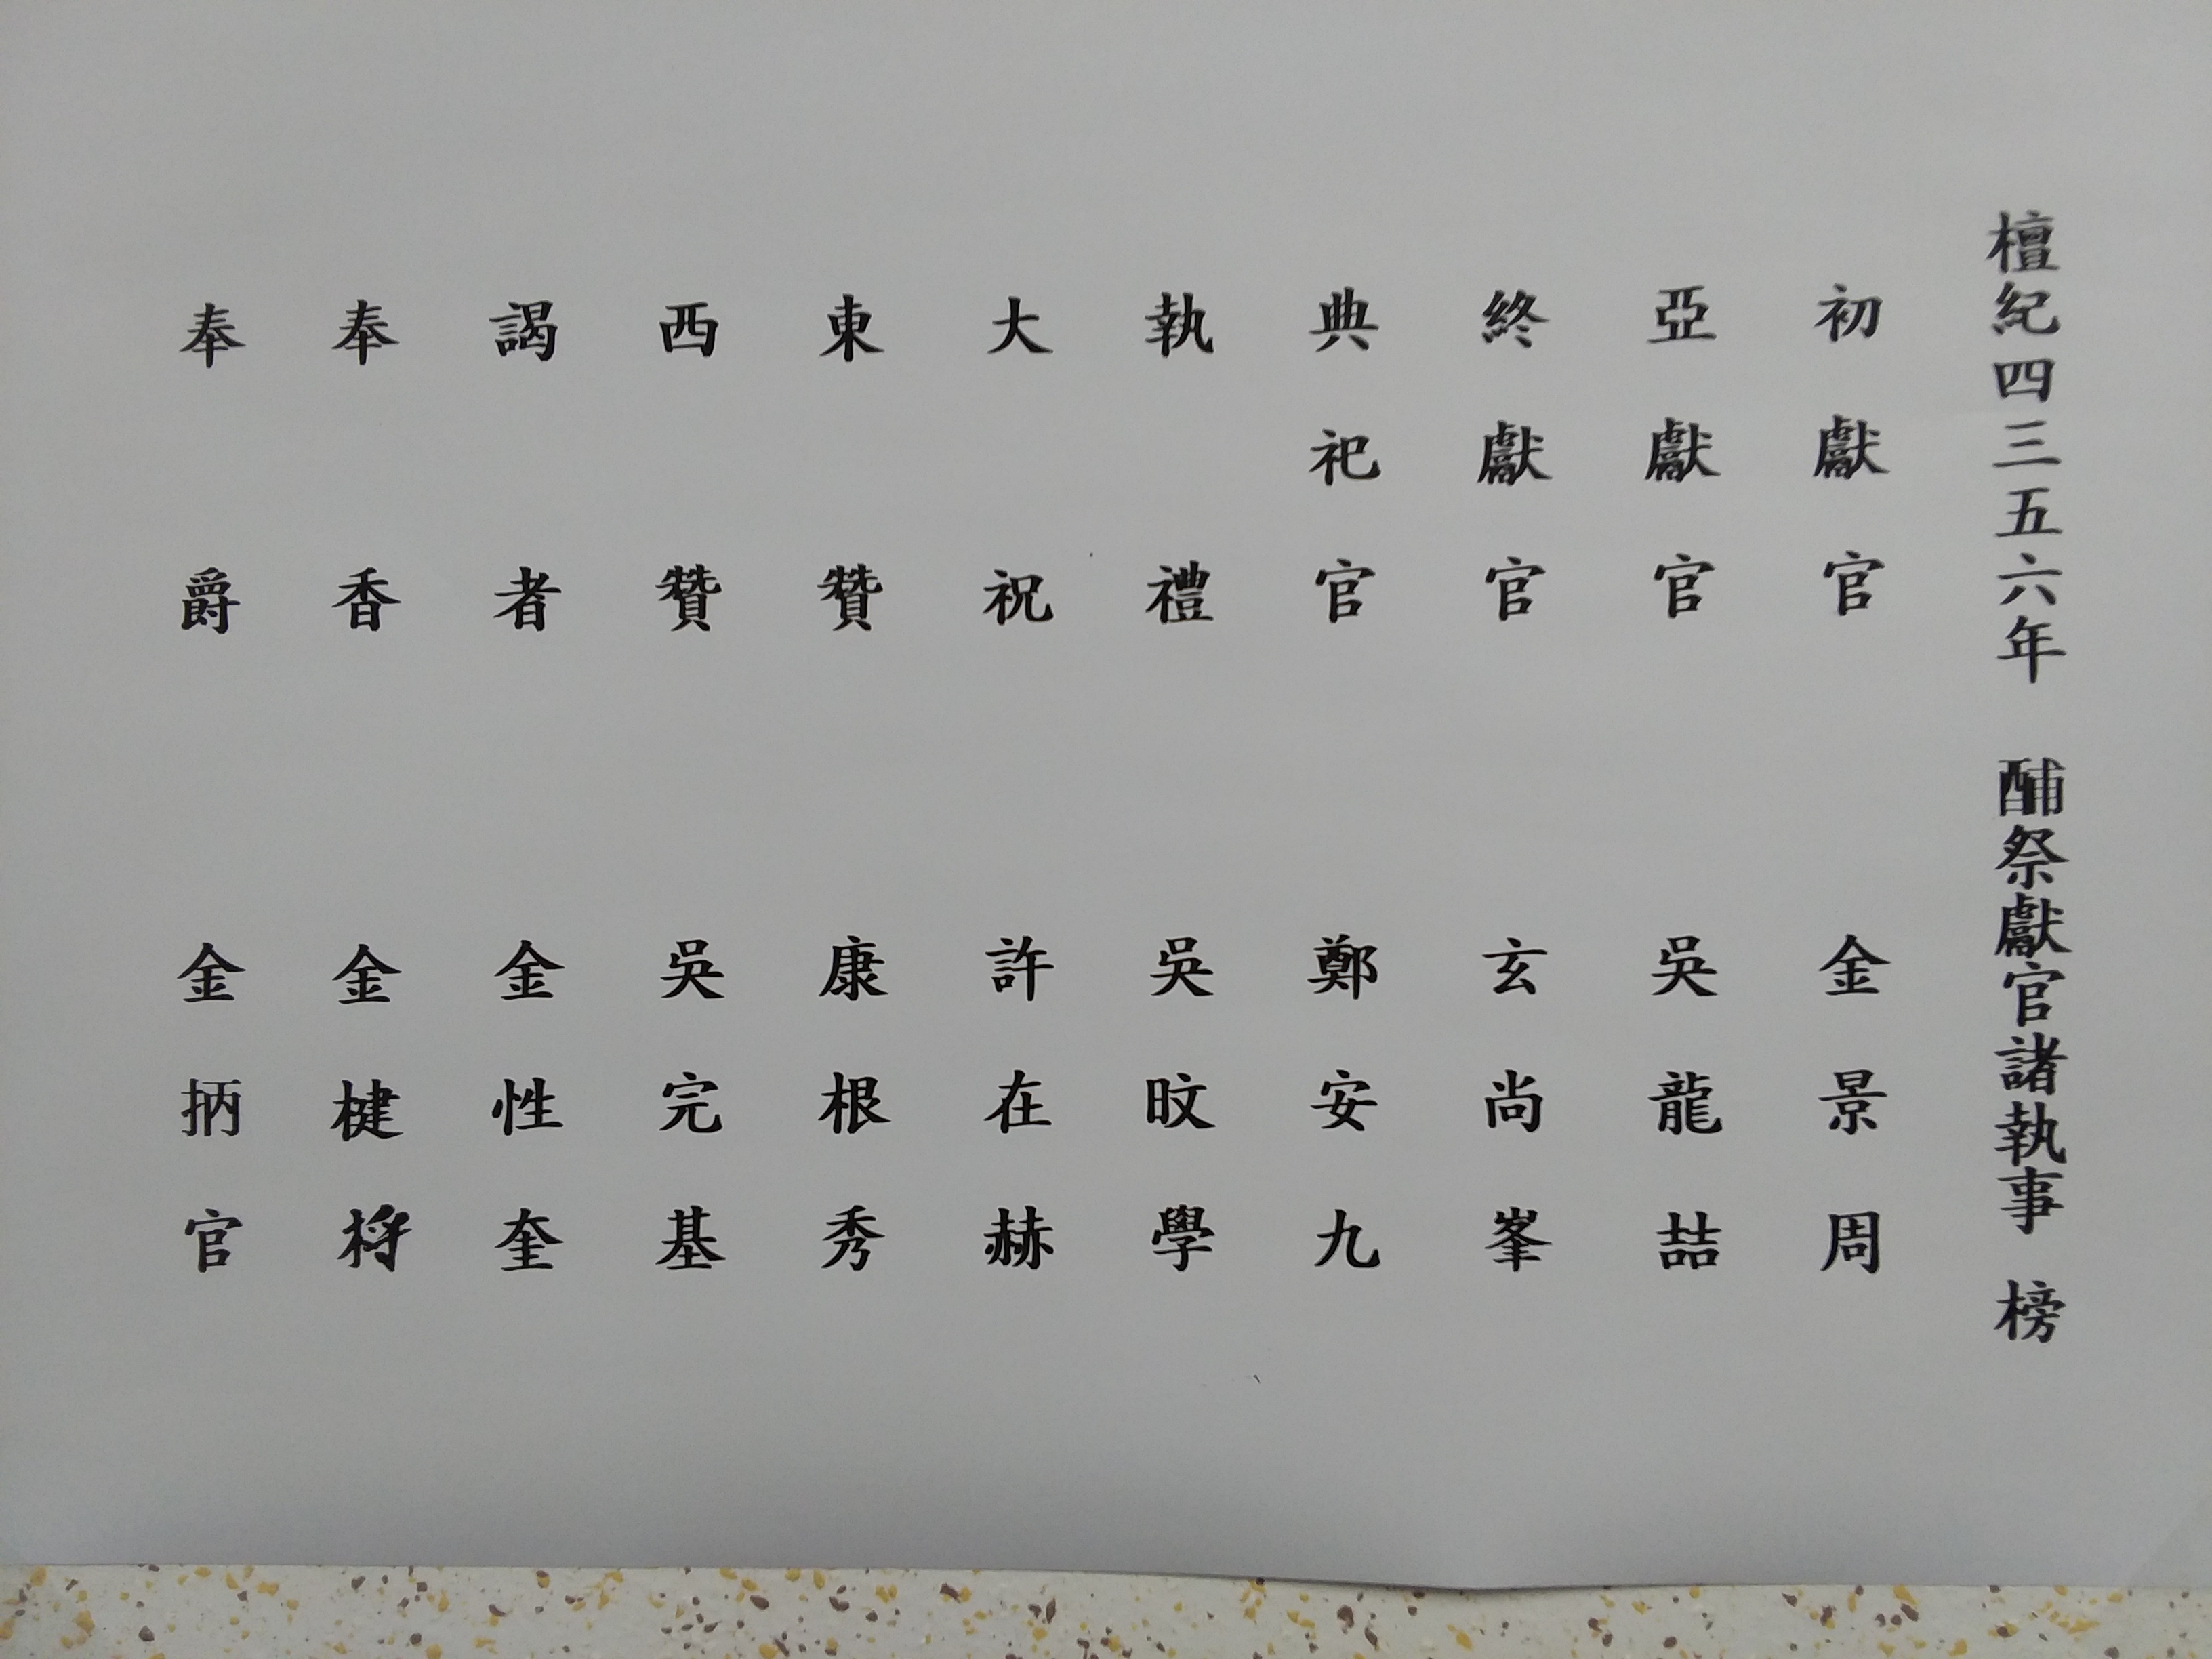 檀紀四三五六年 酺祭獻官諸執事 榜
初獻官 金景周
亞獻官 吳龍喆
終獻官 玄尚峯
典祀官 鄭安九
執禮 吳旼學
大祝 許在赫
東贊 康根秀
西贊 吳完基
謁者 金性奎
奉香 金楗将
奉爵 金抦官